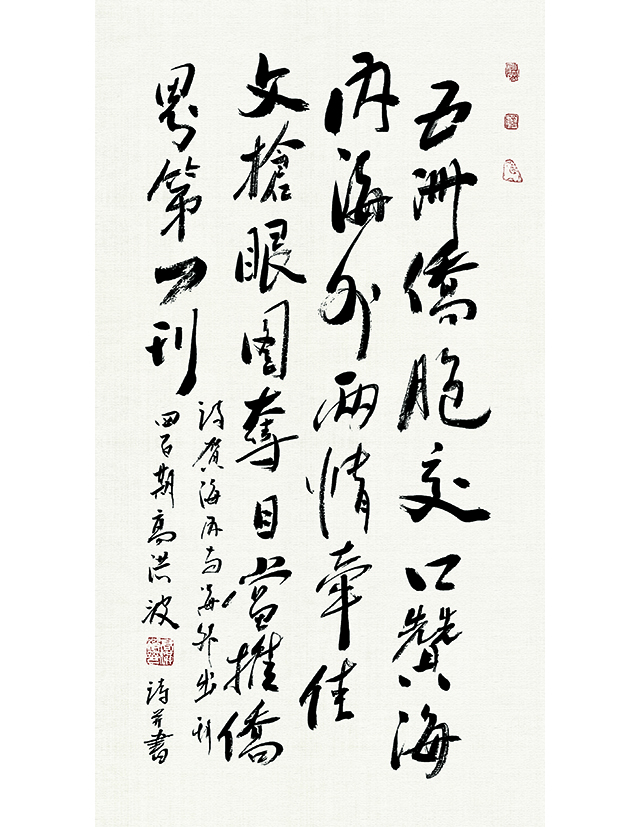 五洲僑胞交口贊海
内海外兩情牽佳
文搶眼圖奪目當推僑
界第一刊
詩賀海内与海外出刊
四百期高洪波
詩并書